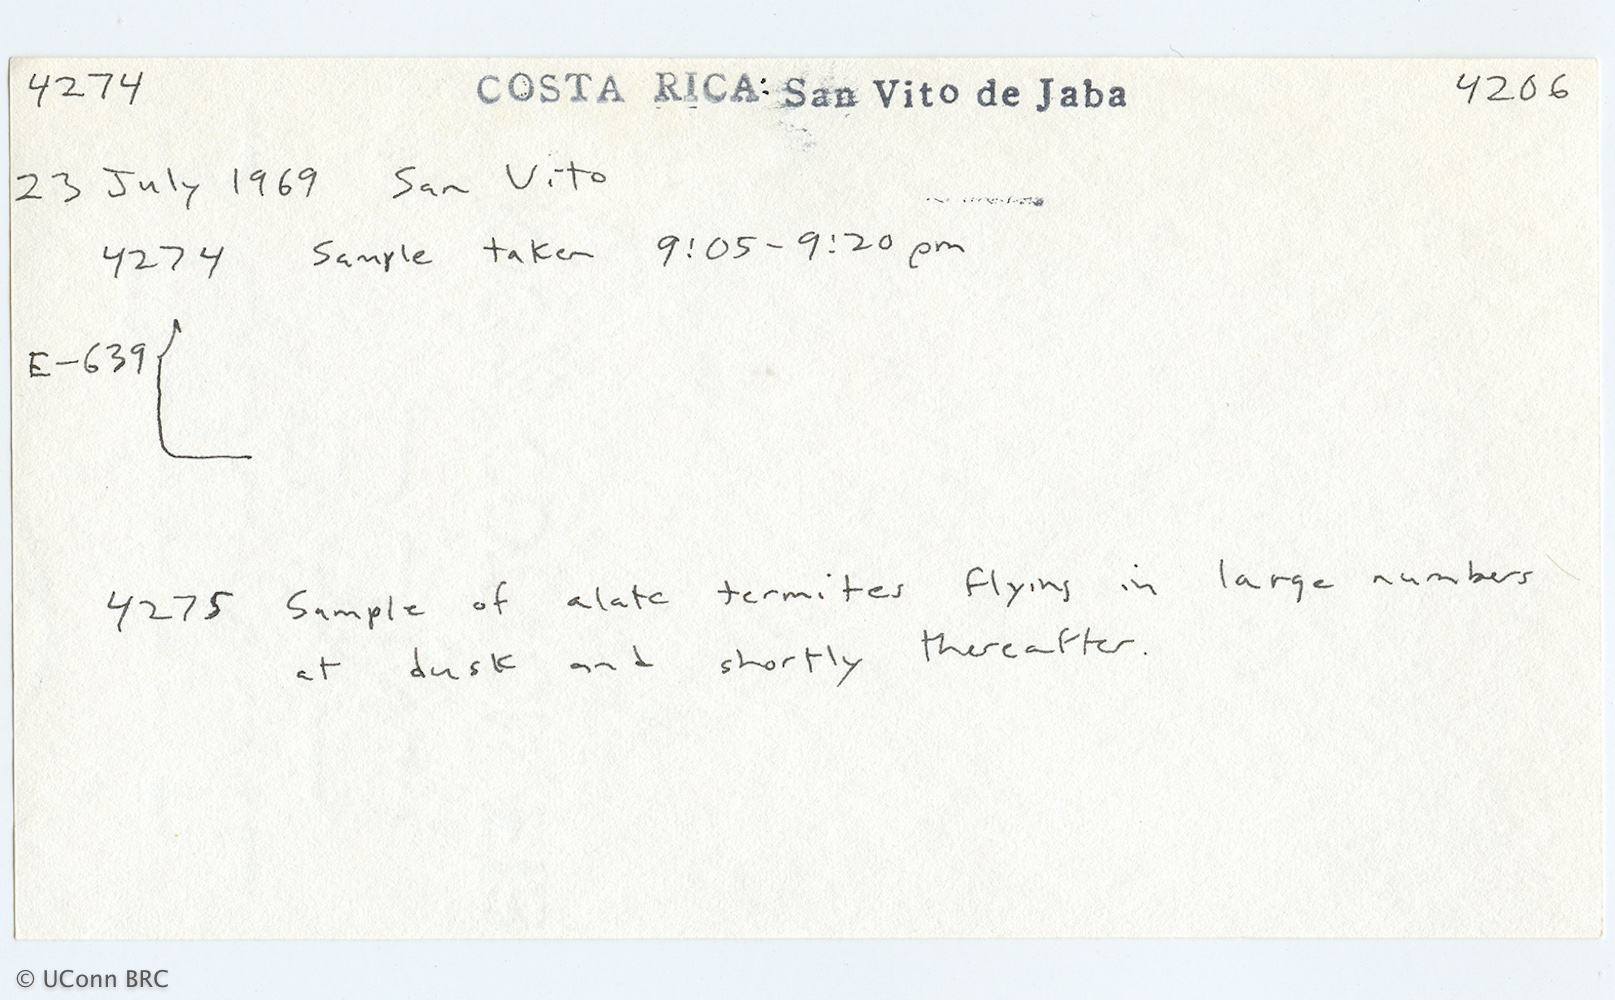 4274 COSTA RICA: San Vito de Jaba 4206
23 July 1969 San Vito
4274 Sample taken 9:05-9:20 pm
E-639
4275 Sample of alate termites flying in large numbers
at dusk and shortly thereafter.
© UConn BRC